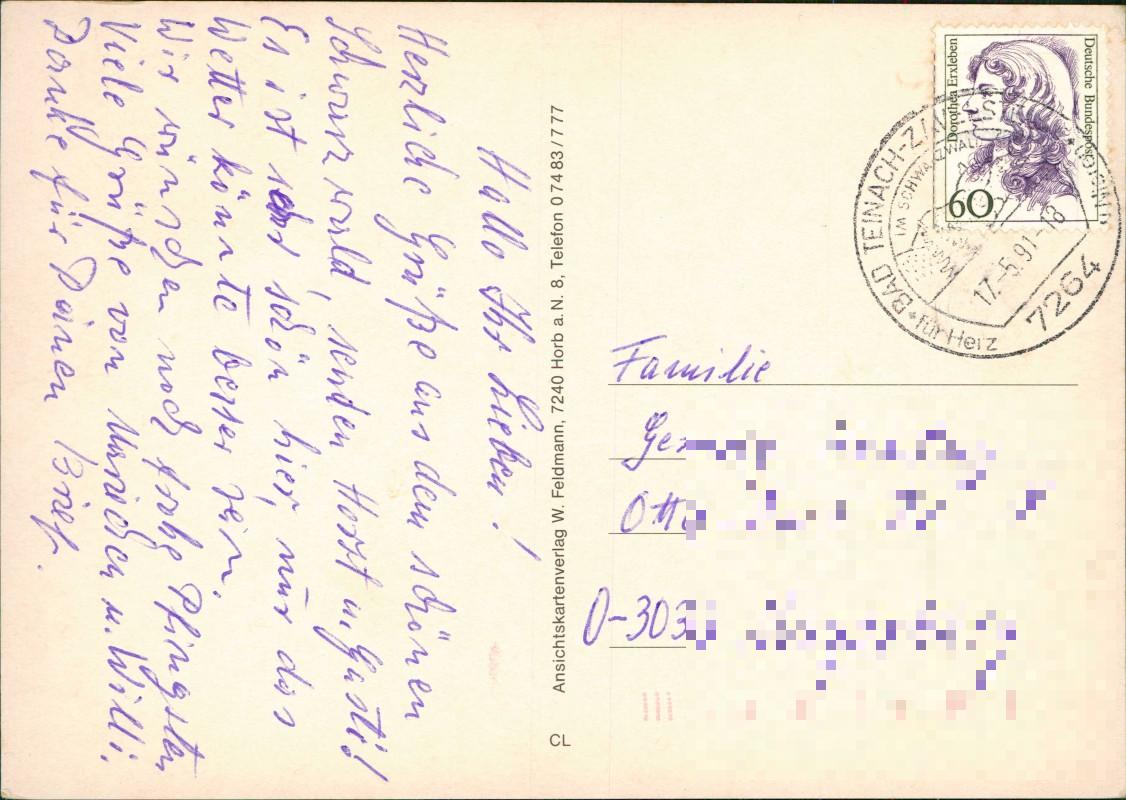 Hallo Ihr Lieben!
Herzliche Grüße aus dem schönen
Schwarzwald, senden Horst u. Gusti!
Es ist sehr schön hier, nur das
Wetter könnte besser sein.
Wir wünschen noch frohe Pfingsten
Viele Grüße von München u. Willi.
Danke für Deinen Brief.
Ansichtskartenverlag W. Feldmann, 7240 Horb a. N. 8, Telefon 0 74 83 / 7 77
CL
Dorothea Erxleben
Deutsche Bundespost
60
BAD TEINACH-
IM SCHWARZWALD
17.-5.91-18
7264
für Herz
Familie
O-303